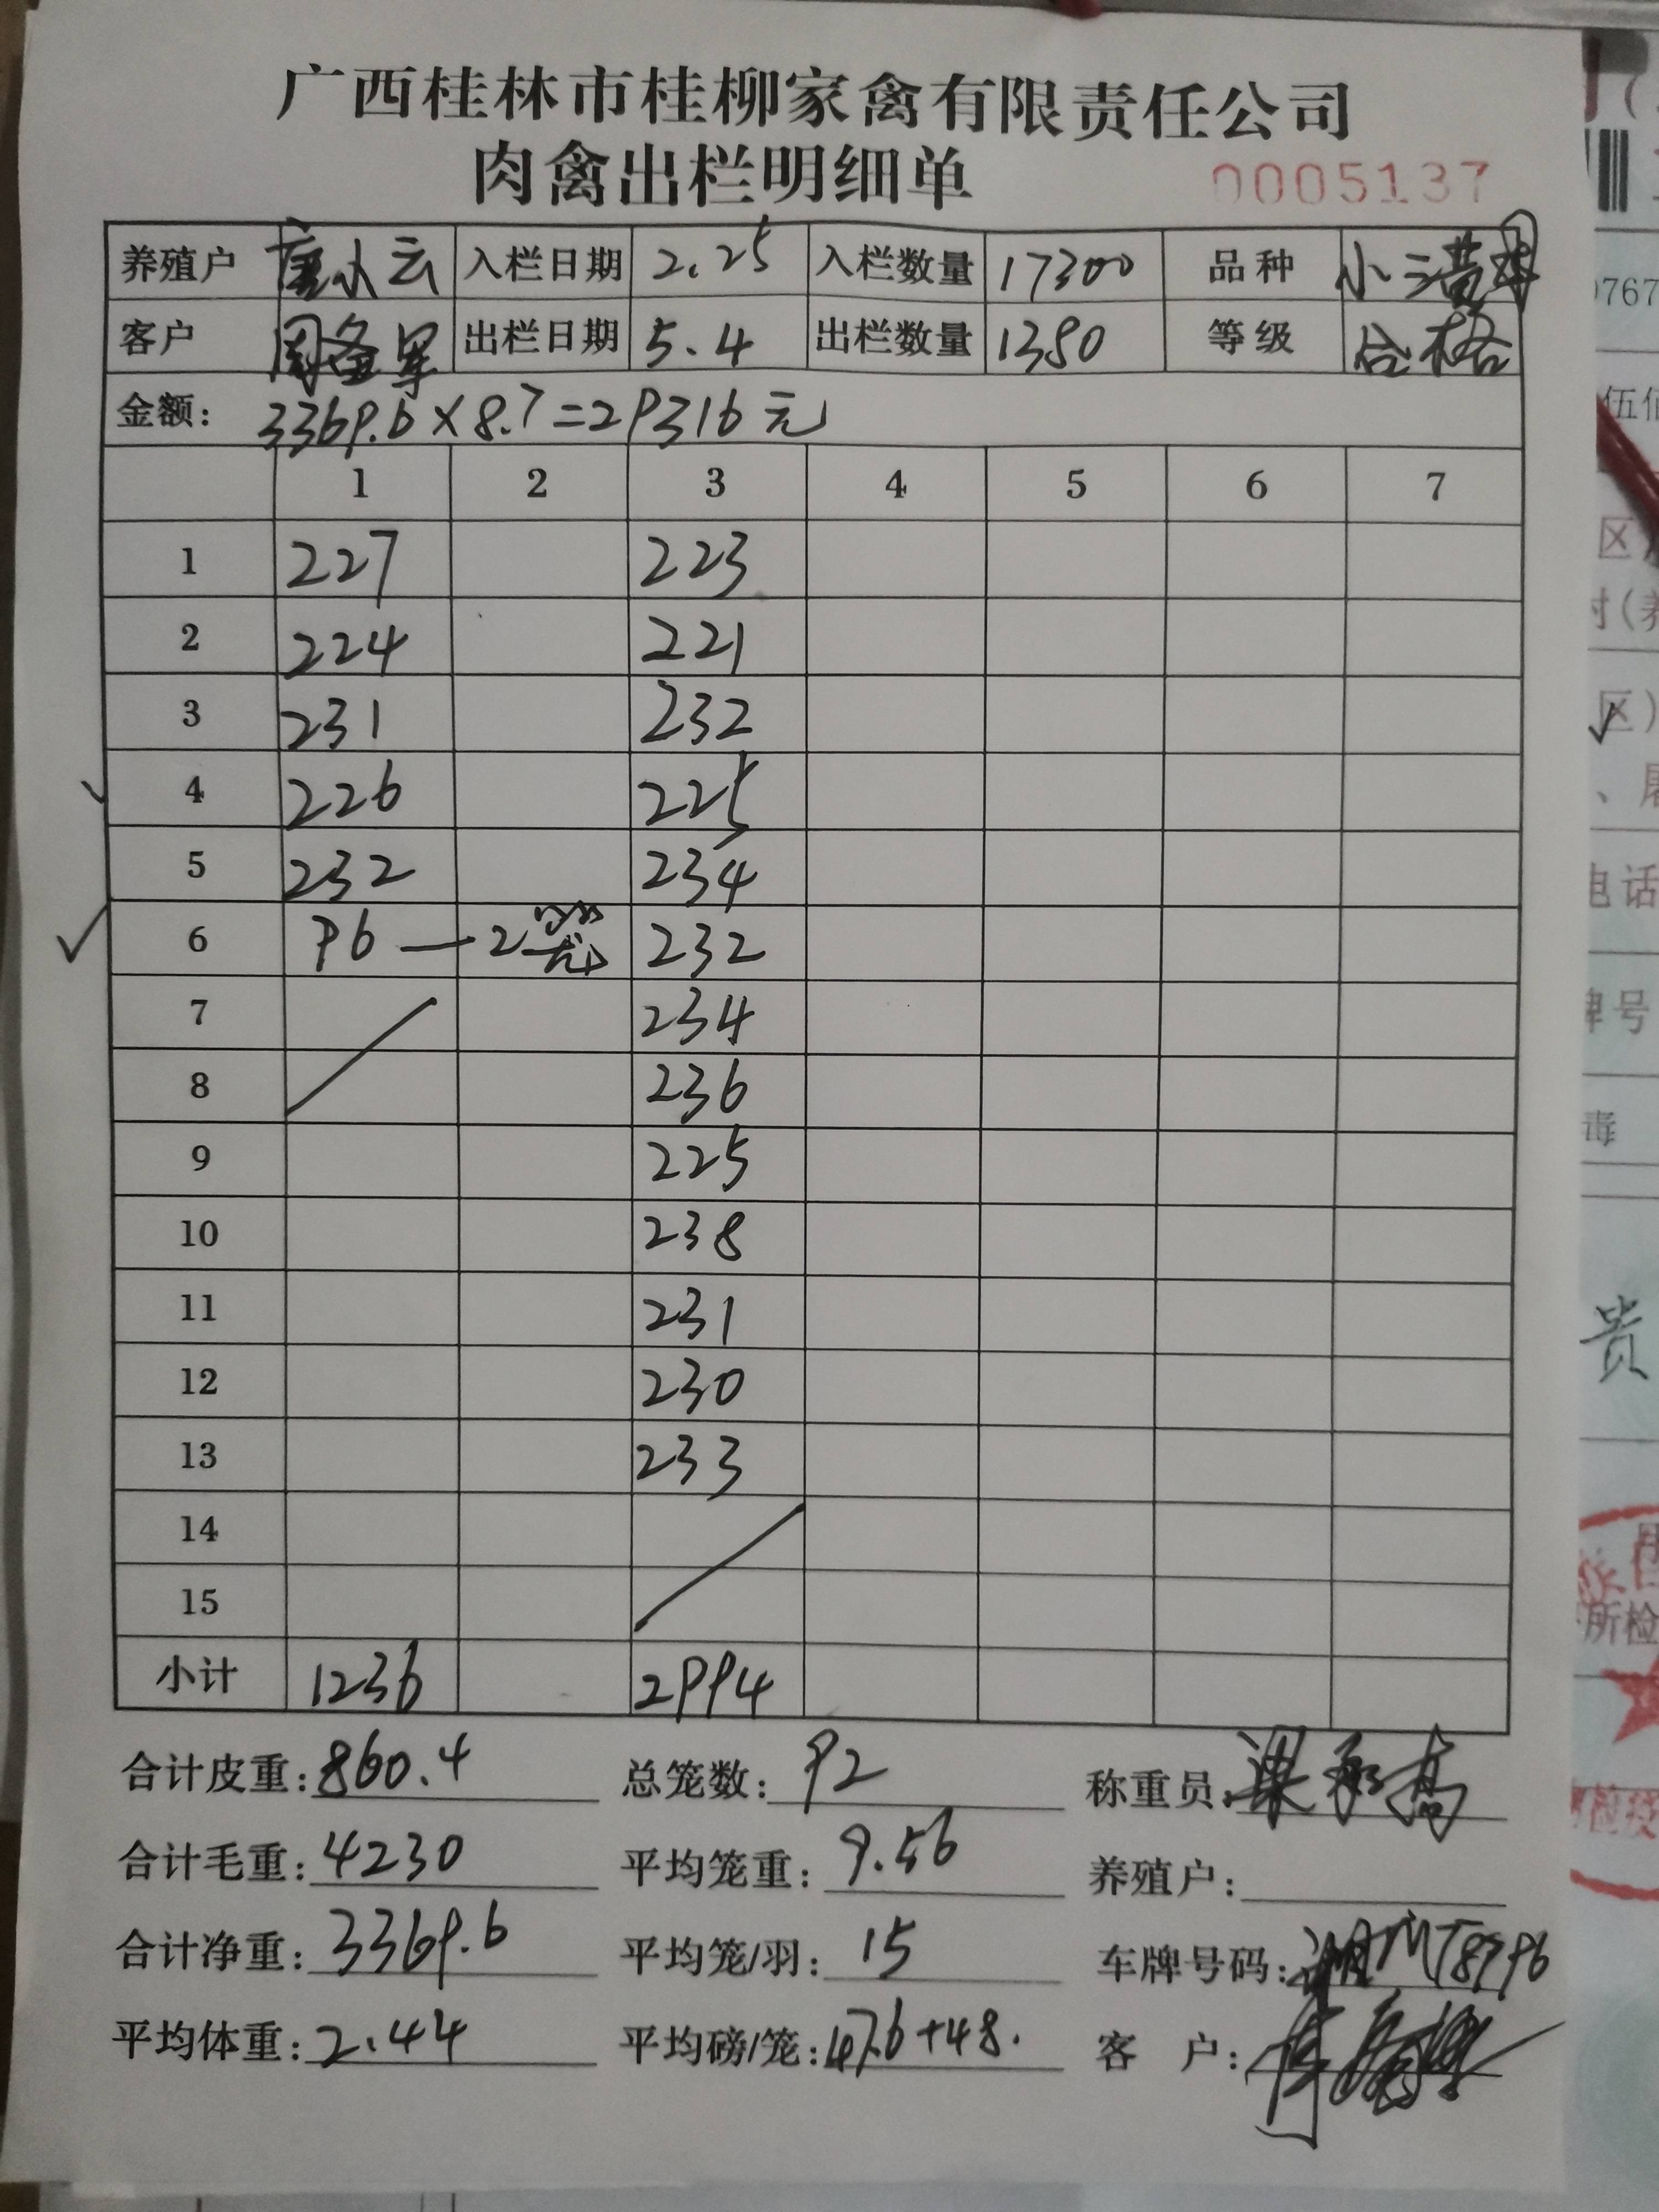 广西桂林市桂柳家禽有限责任公司
肉禽出栏明细单 0005137
养殖户 唐小云 入栏日期 2.25 入栏数量 17300 品种 小三黄
客户 出栏日期 5.4 出栏数量 1380 等级 合格
金额: 3369.6×8.7=29316元
1 2 3 4 5 6 7
1 227 223
2 224 221
3 231 232
4 226 225
5 232 234
6 96—2笼 232
7 234
8 236
9 225
10 238
11 231
12 230
13 233
14
15
小计 1236 2994
合计皮重: 860.4 总笼数: 92 称重员:
合计毛重: 4230 平均笼重: 9.56 养殖户:
合计净重: 3369.6 平均笼/羽: 15 车牌号码:
平均体重: 2.44 平均磅/笼: 47.6+48. 客 户:
0767
伍佰
区
村(养
区)
、屠
电话
牌号
毒
贵
所检
检疫